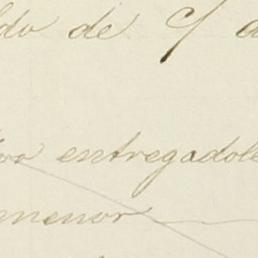 ldo de c/
entregadole
menor